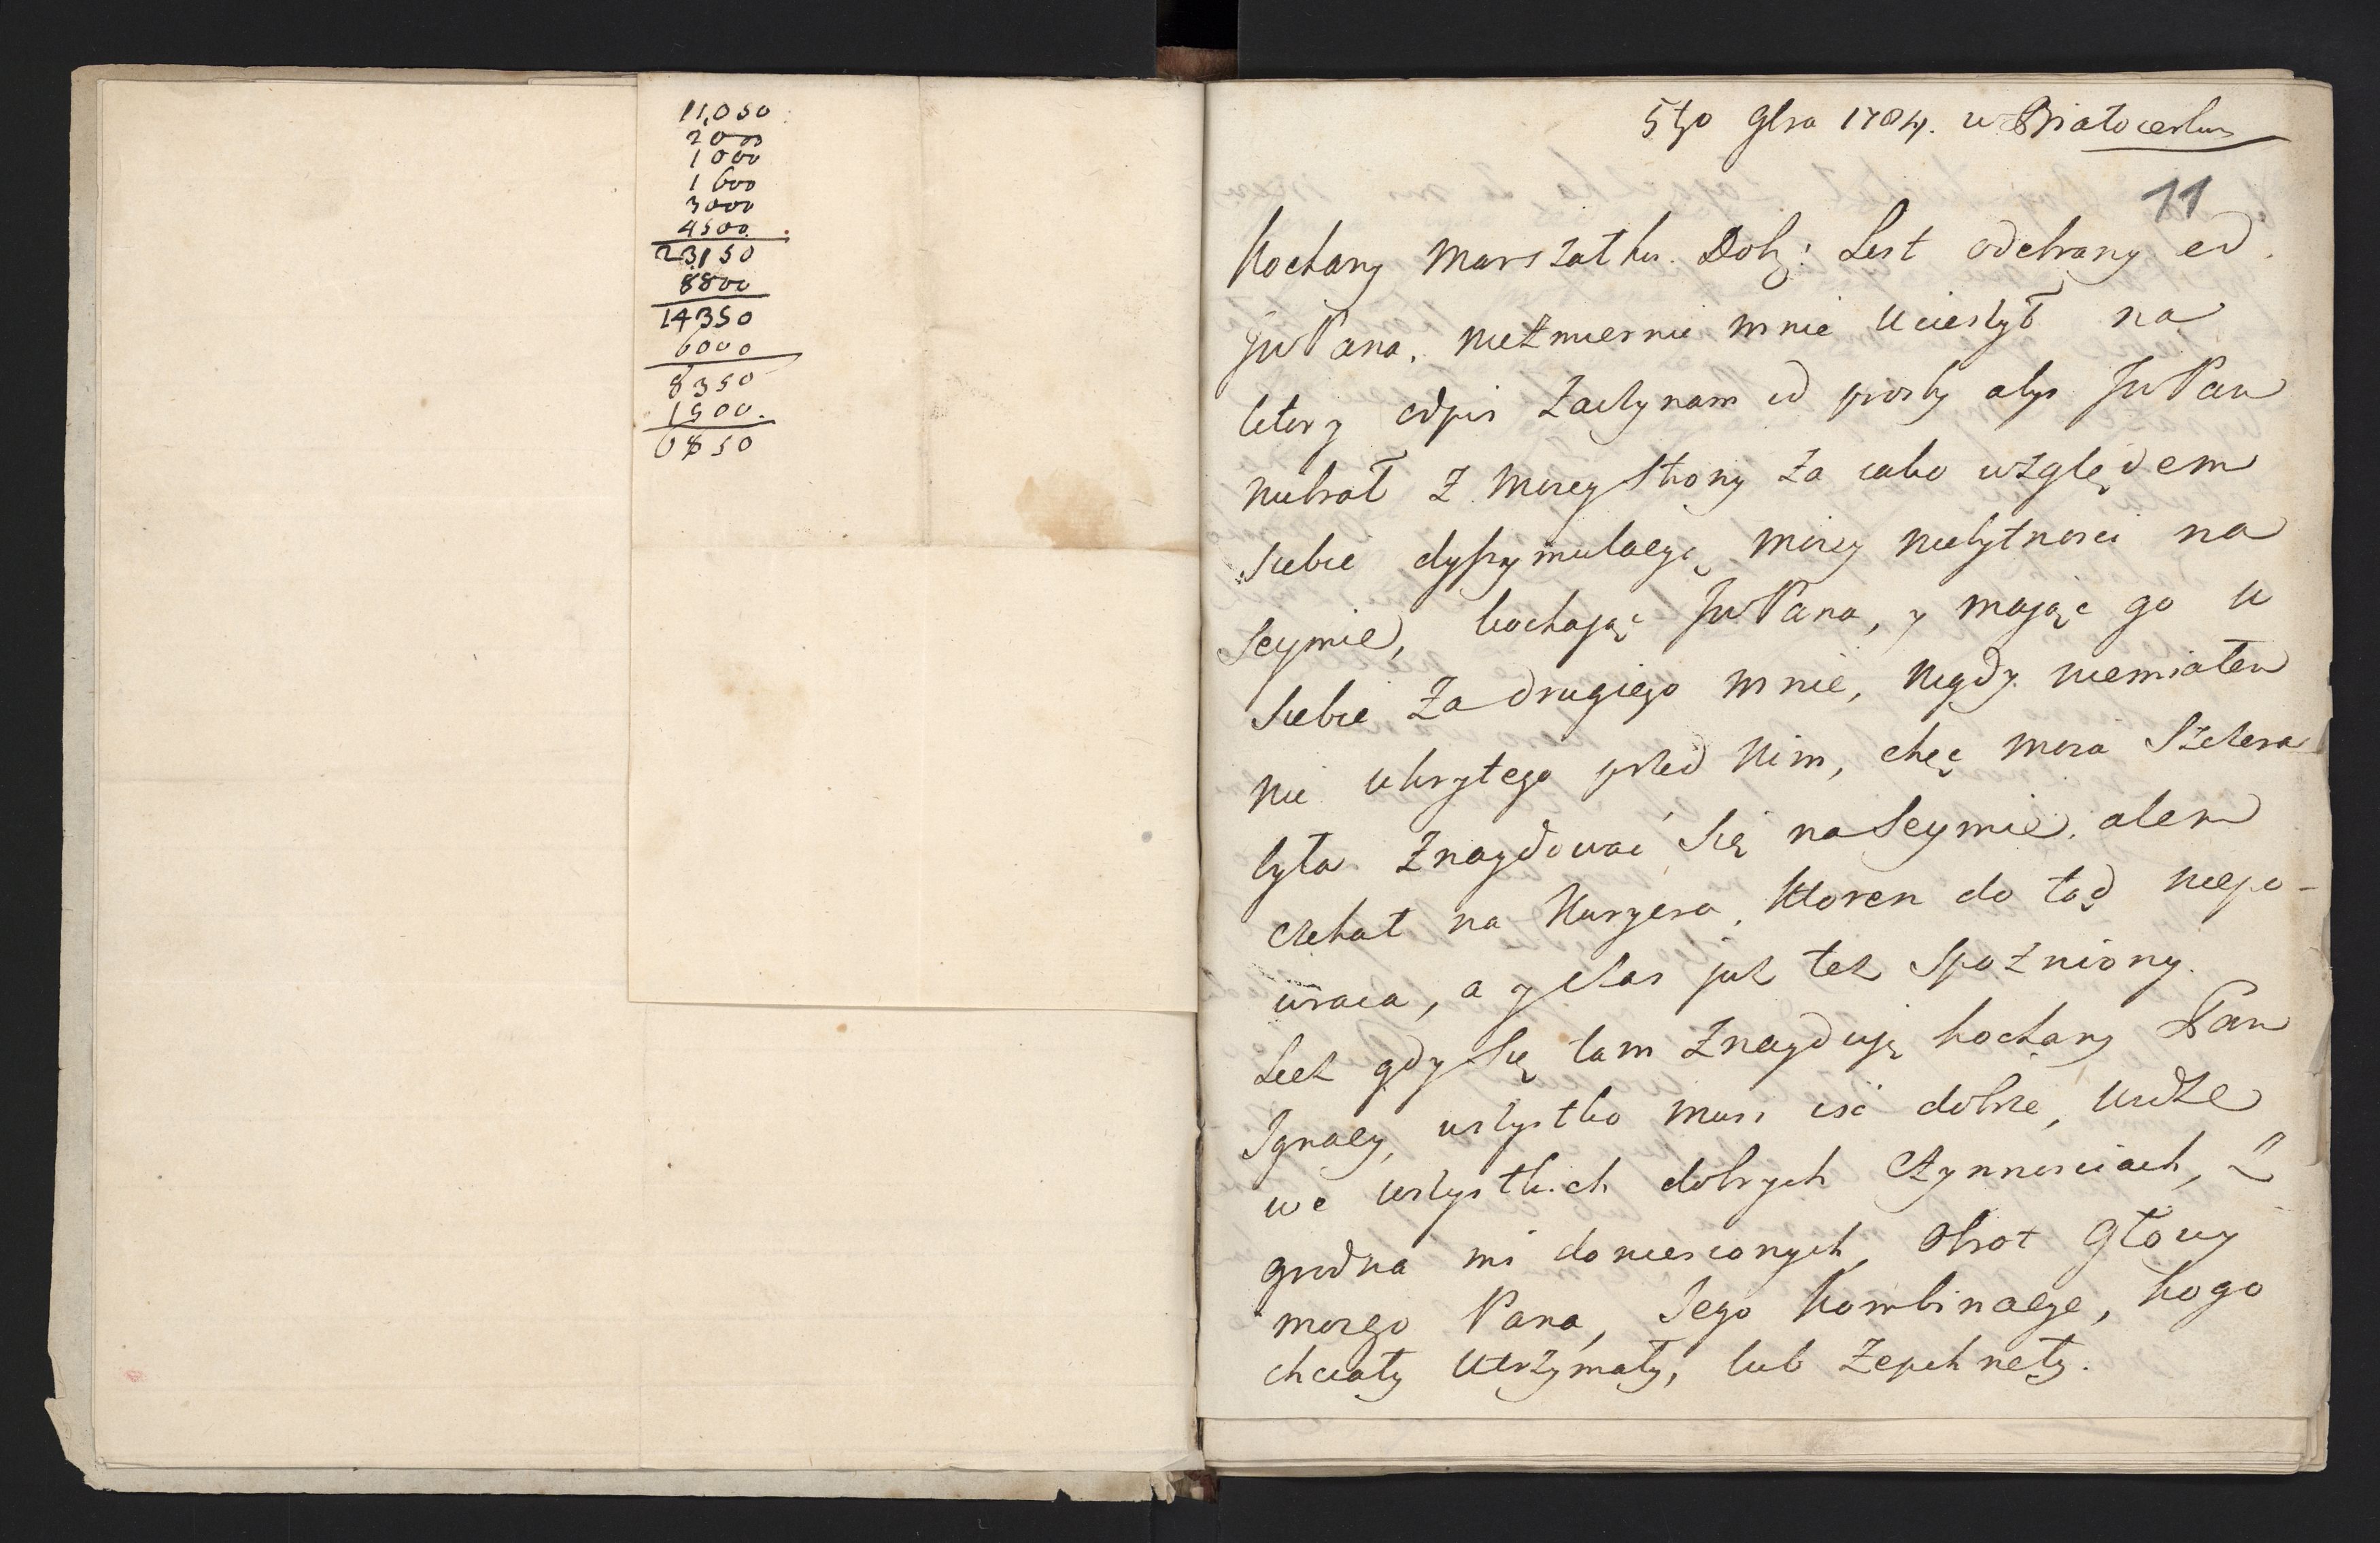 11,050
2000
1000
1600
3000
4500.
23,150
8800
14350
6000
8350
1500.
6850
5tgo 9bra 1784. w Białocerkw
11
Kochany Marszałku Dobr: List odebrany od
JWPana, niezmiernie mnie ucieszył na
ktory odpis zaczynam od prosby abys JWPan
niebrał z moiey strony za iako względem
siebie dyssymulacyą moiey niebytnosci na
Seymie, kochaiąc JWPana, y maiąc go u
siebie za drugiego mnie, nigdy niemiałem
nic ukrytego przed nim, chęć moia szczera
była znaydować się na Seymie. alem
czekał na Kuryera, ktoren do tąd niepo-
wraca, a y czas już też spozniony.
Lecz gdy się tam znayduje kochany Pan
Ignacy, wszystko musi iść dobrze, widze
we wszystkich dobrych czynnosciach, z
Grodna mi doniesionych, obrot głowy
moiego Pana, Jego kombinacye, kogo
chciały utrzymały, lub zepchneły.